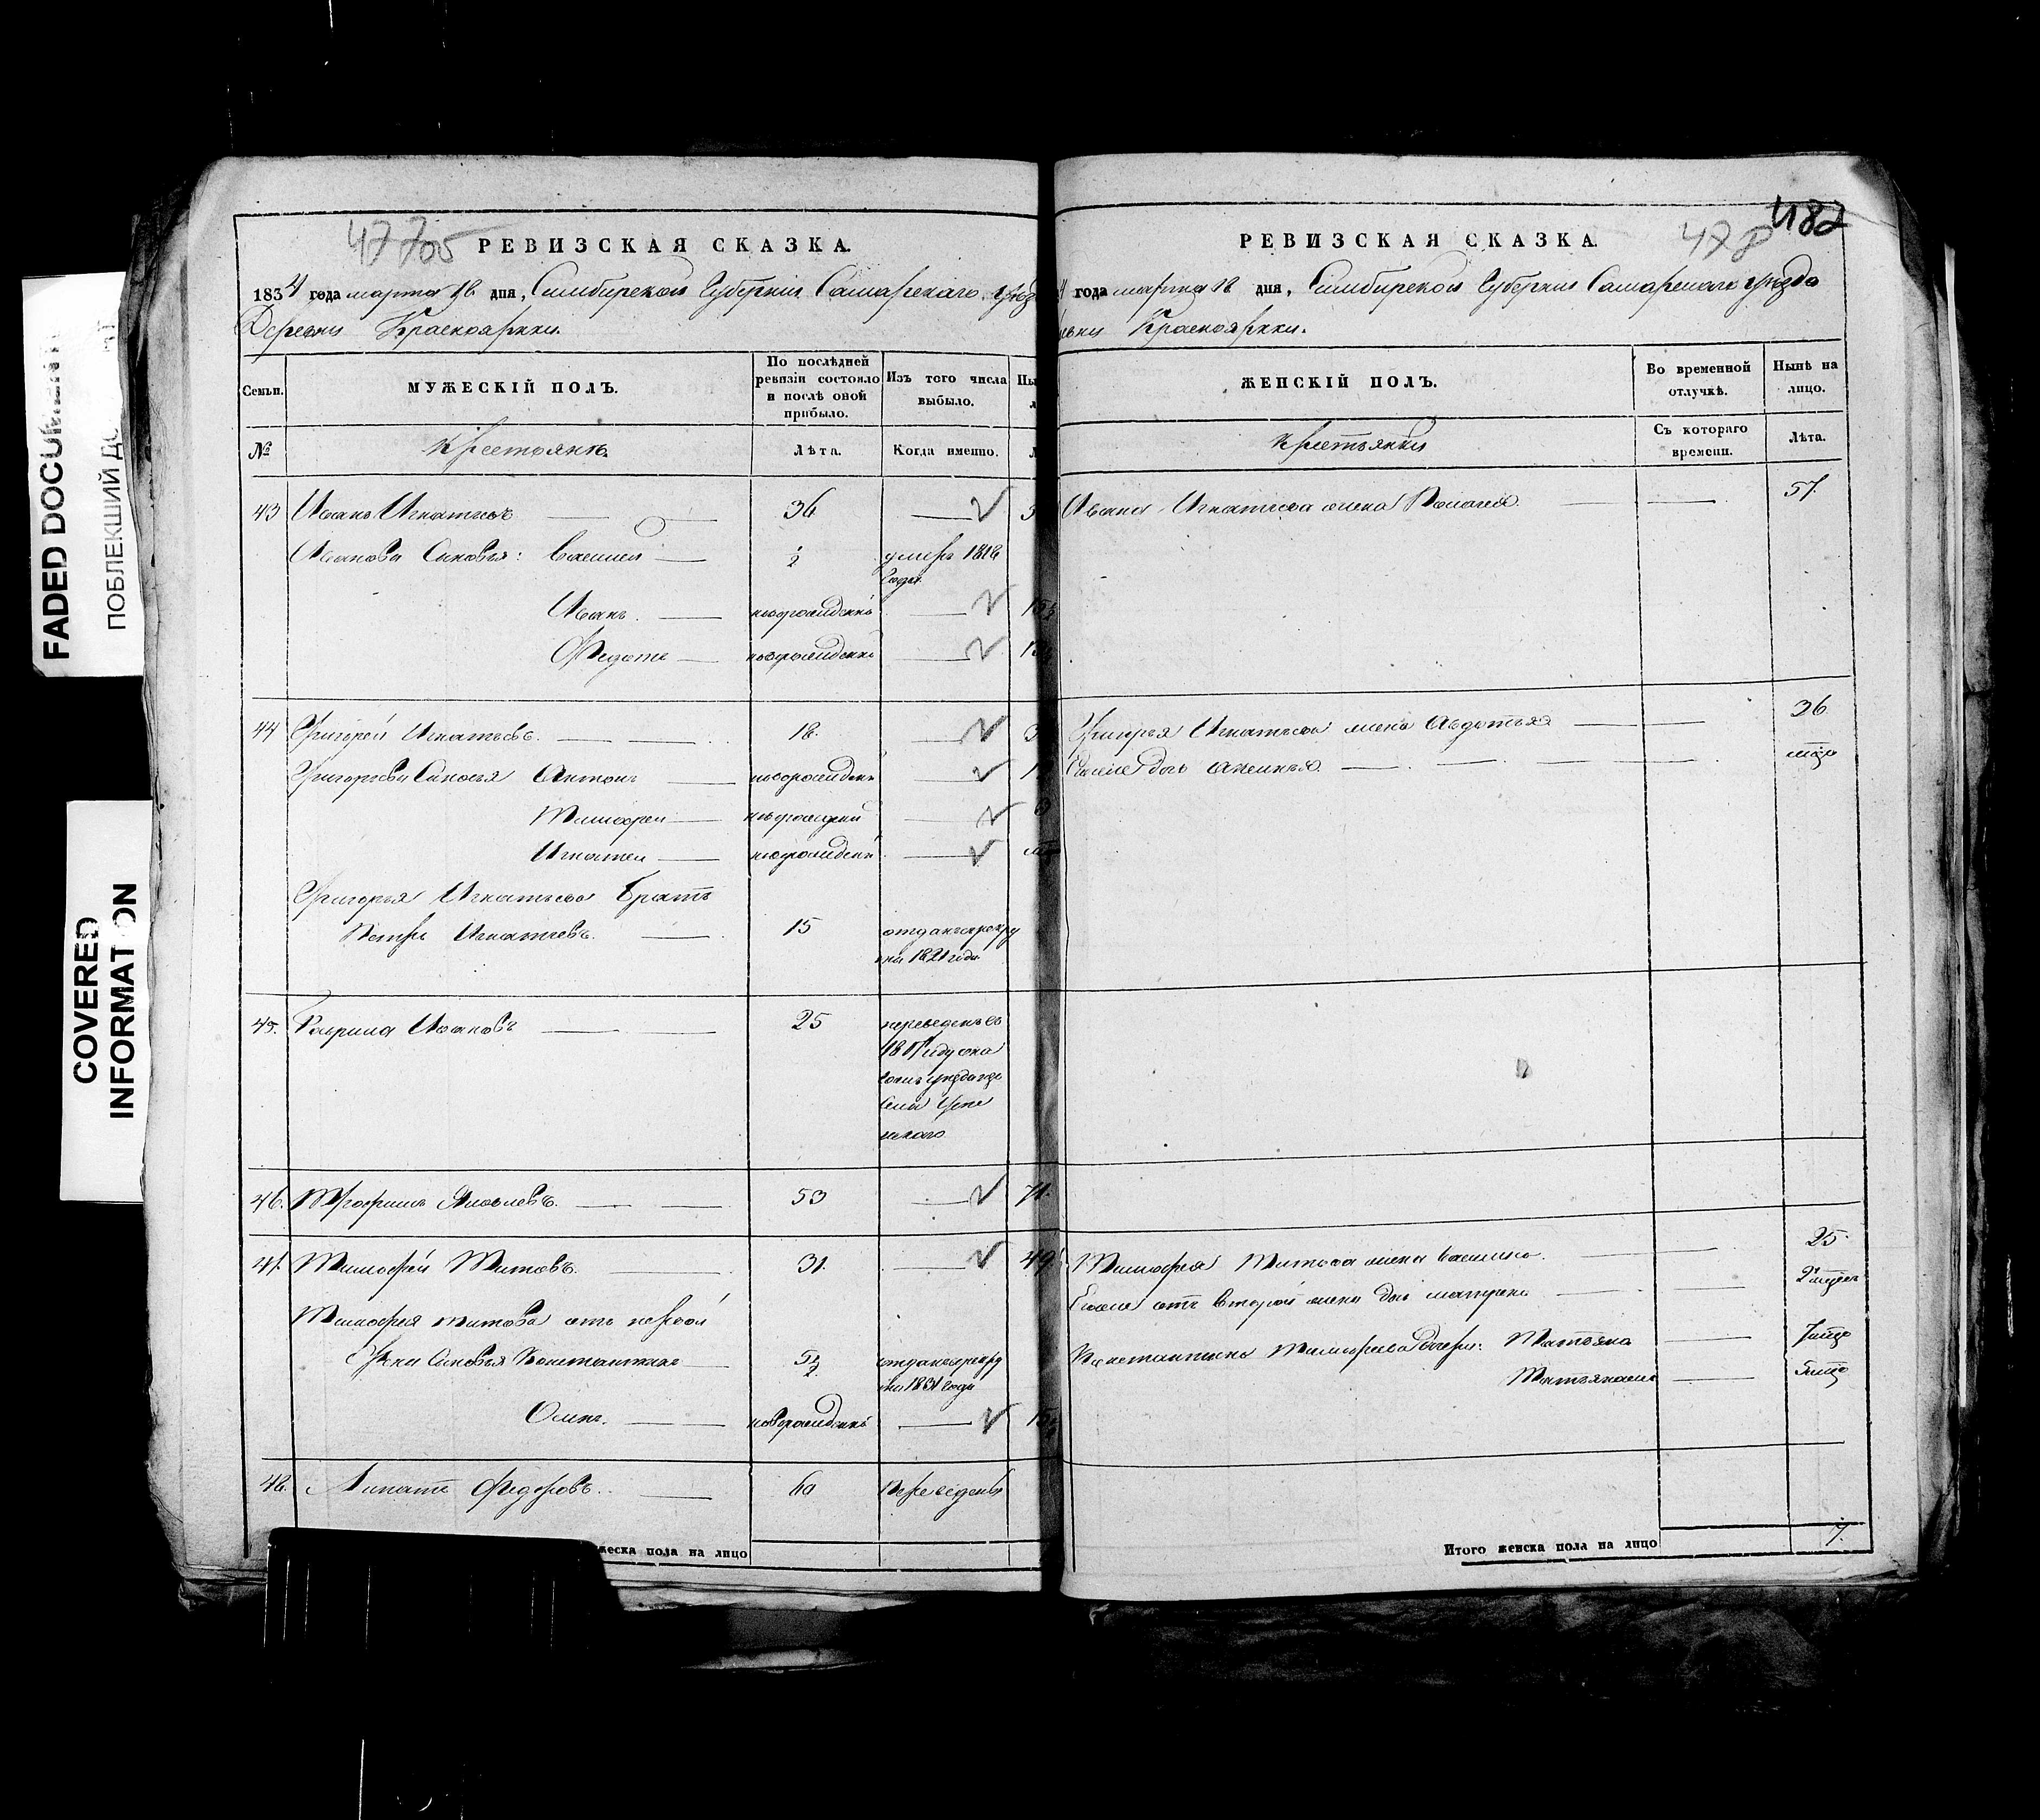 FADED DOCUM
ПОБЛЕКШИЙ ДО
COVERED
INFORMATION
47705
РЕВИЗСКАЯ СКАЗКА.
1834 года марта 18 дня, Симбирской Губернии Самарскаго уезд
Деревни Красноярки.
Семьи. МУЖЕСКІЙ ПОЛЪ. По послѣдней ревизіи состояло и послѣ оной прибыло. Изъ того числа выбыло. Ны
№ Крестьянъ. Лѣта. Когда именно.
43 Иванъ Игнатьевъ 36
Иванова Сыновья: Василей ½ умеръ 1818
года
Иванъ. новорожденъ 15½
Федотъ новорожденъ
44 Григорей Игнатьевъ. 18. 3
Григорьевы Сыновья Антонъ новорожденъ
Тимофей новорожденъ 9
Игнатей новорожденъ
Григорья Игнатьева Братъ
Петръ Игнатьевъ. 15 отданъ в рекру
ты 1821 года
45. Гаврила Ивановъ 25 переведенъ въ
уезда
села
46. Трофимъ Яковлевъ. 53 71.
47. Тимофей Титовъ. 31. 49
Тимофея Титова отъ первой
жены Сыновья Константинъ 5½ отданъ в рекру
ты 1831 года
Осипъ. новорожденъ 15½
48. Липатъ Федоровъ. 60 Переведенъ
жеска пола на лицо
478 482
РЕВИЗСКАЯ СКАЗКА.
4 года марта 18 дня, Симбирской Губернии Самарскаго уезда
евни Красноярки.
ЖЕНСКІЙ ПОЛЪ. Во временной отлучкѣ. Нынѣ на лицо.
Крестьянки Съ котораго времени. Лѣта.
Ивана Игнатьева жена Пелагея. 57.
Григорья Игнатьева жена Авдотья 36.
Ево же дочь Аксинья.
Тимофея Титова жена 25.
Ево же отъ второй жены дочь Матрена
Константина Тимофеева Дочери: Татьяна
Итого женска пола на лицо 7.